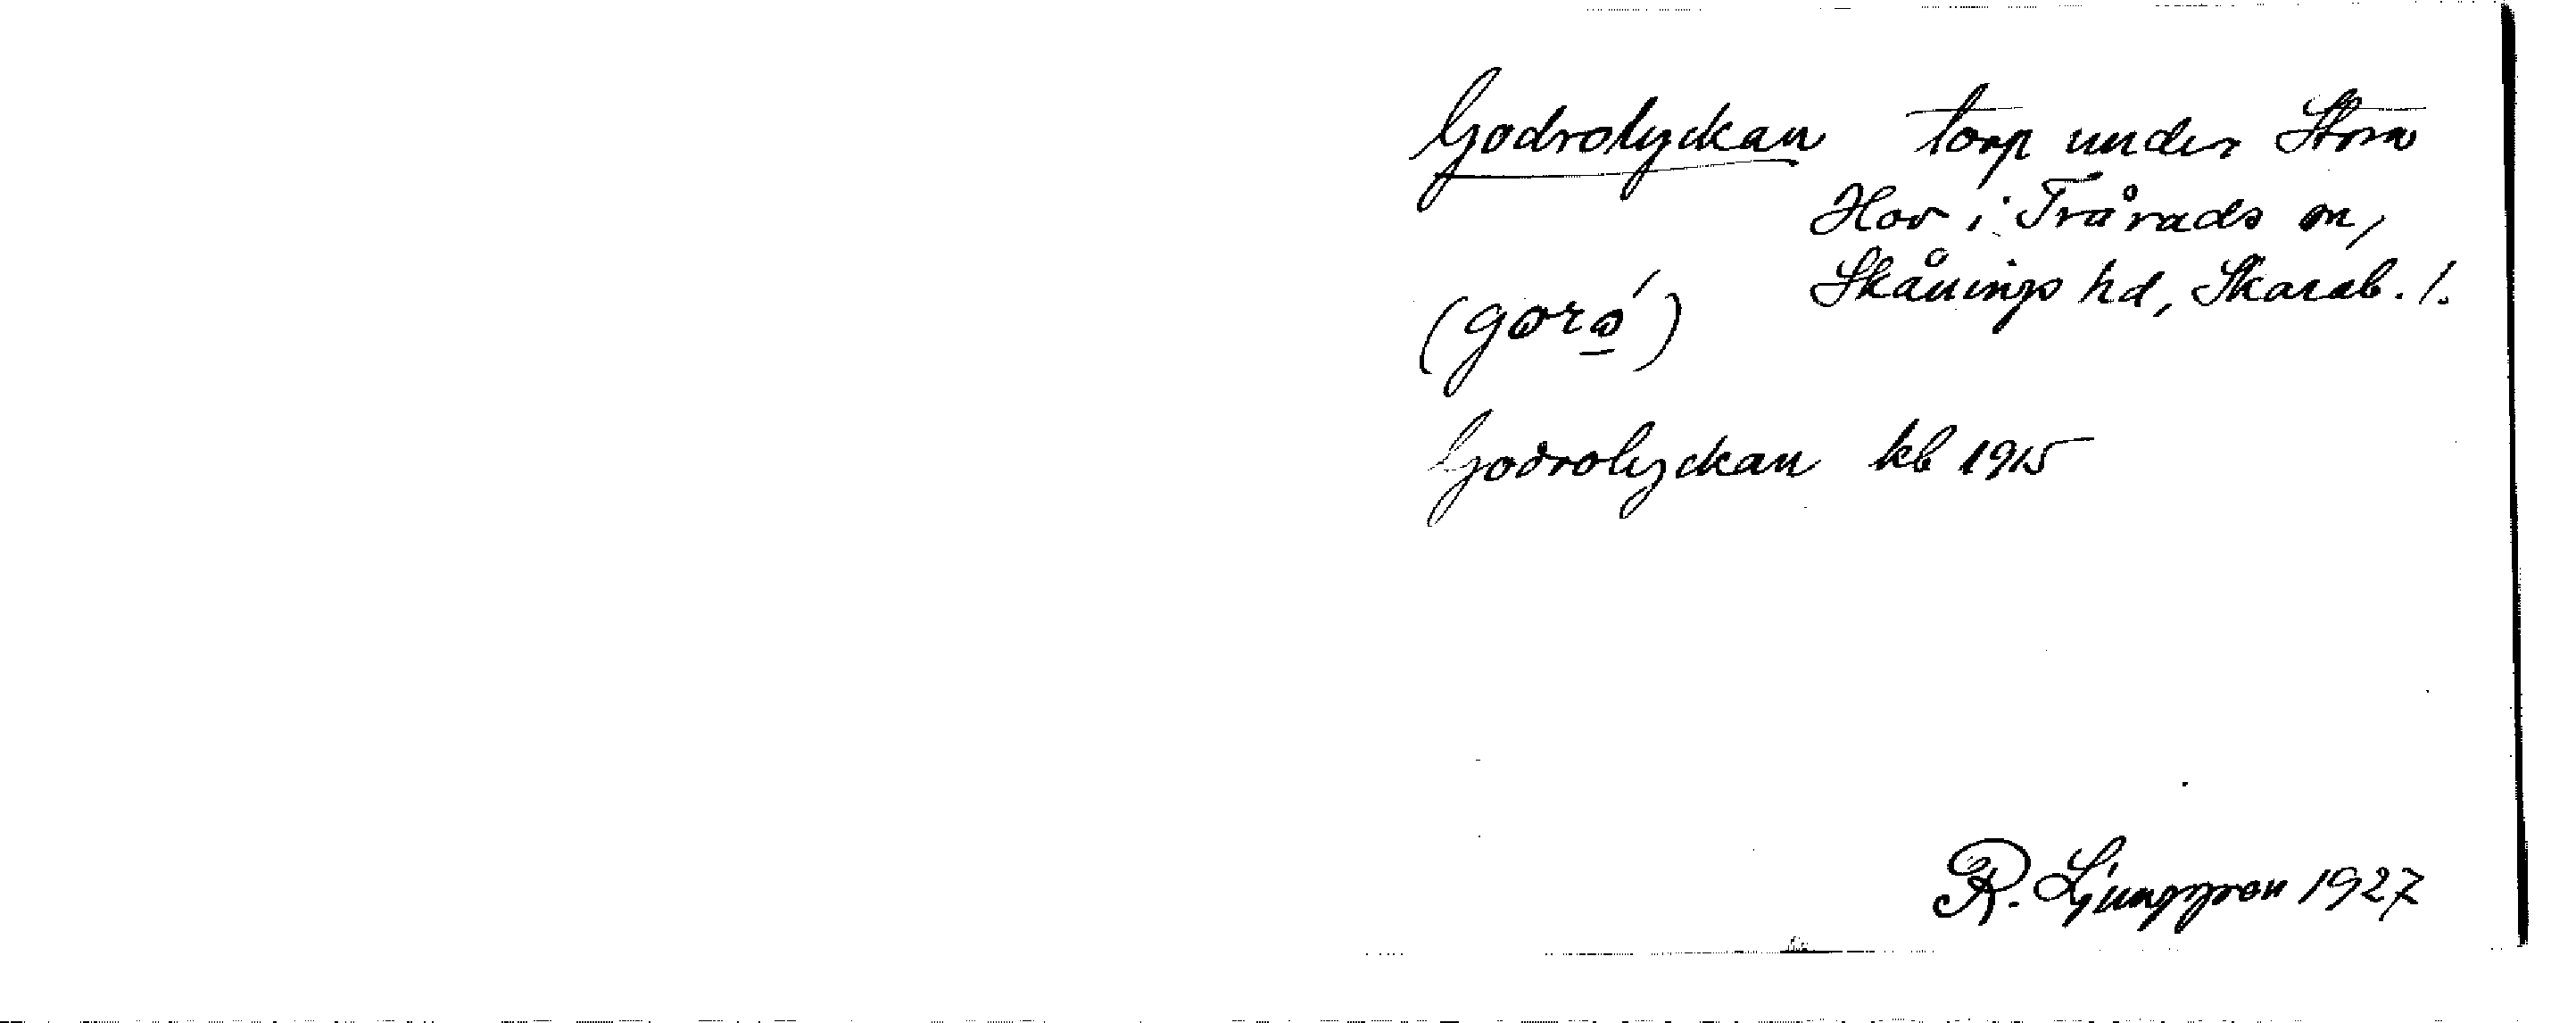 Godrolyckan torp under Stora
Hov i Tråvads sn,
Skånings hd, Skarab. l.
(goro̲´)
Godrolyckan kb 1915
R. Ljunggren 1927